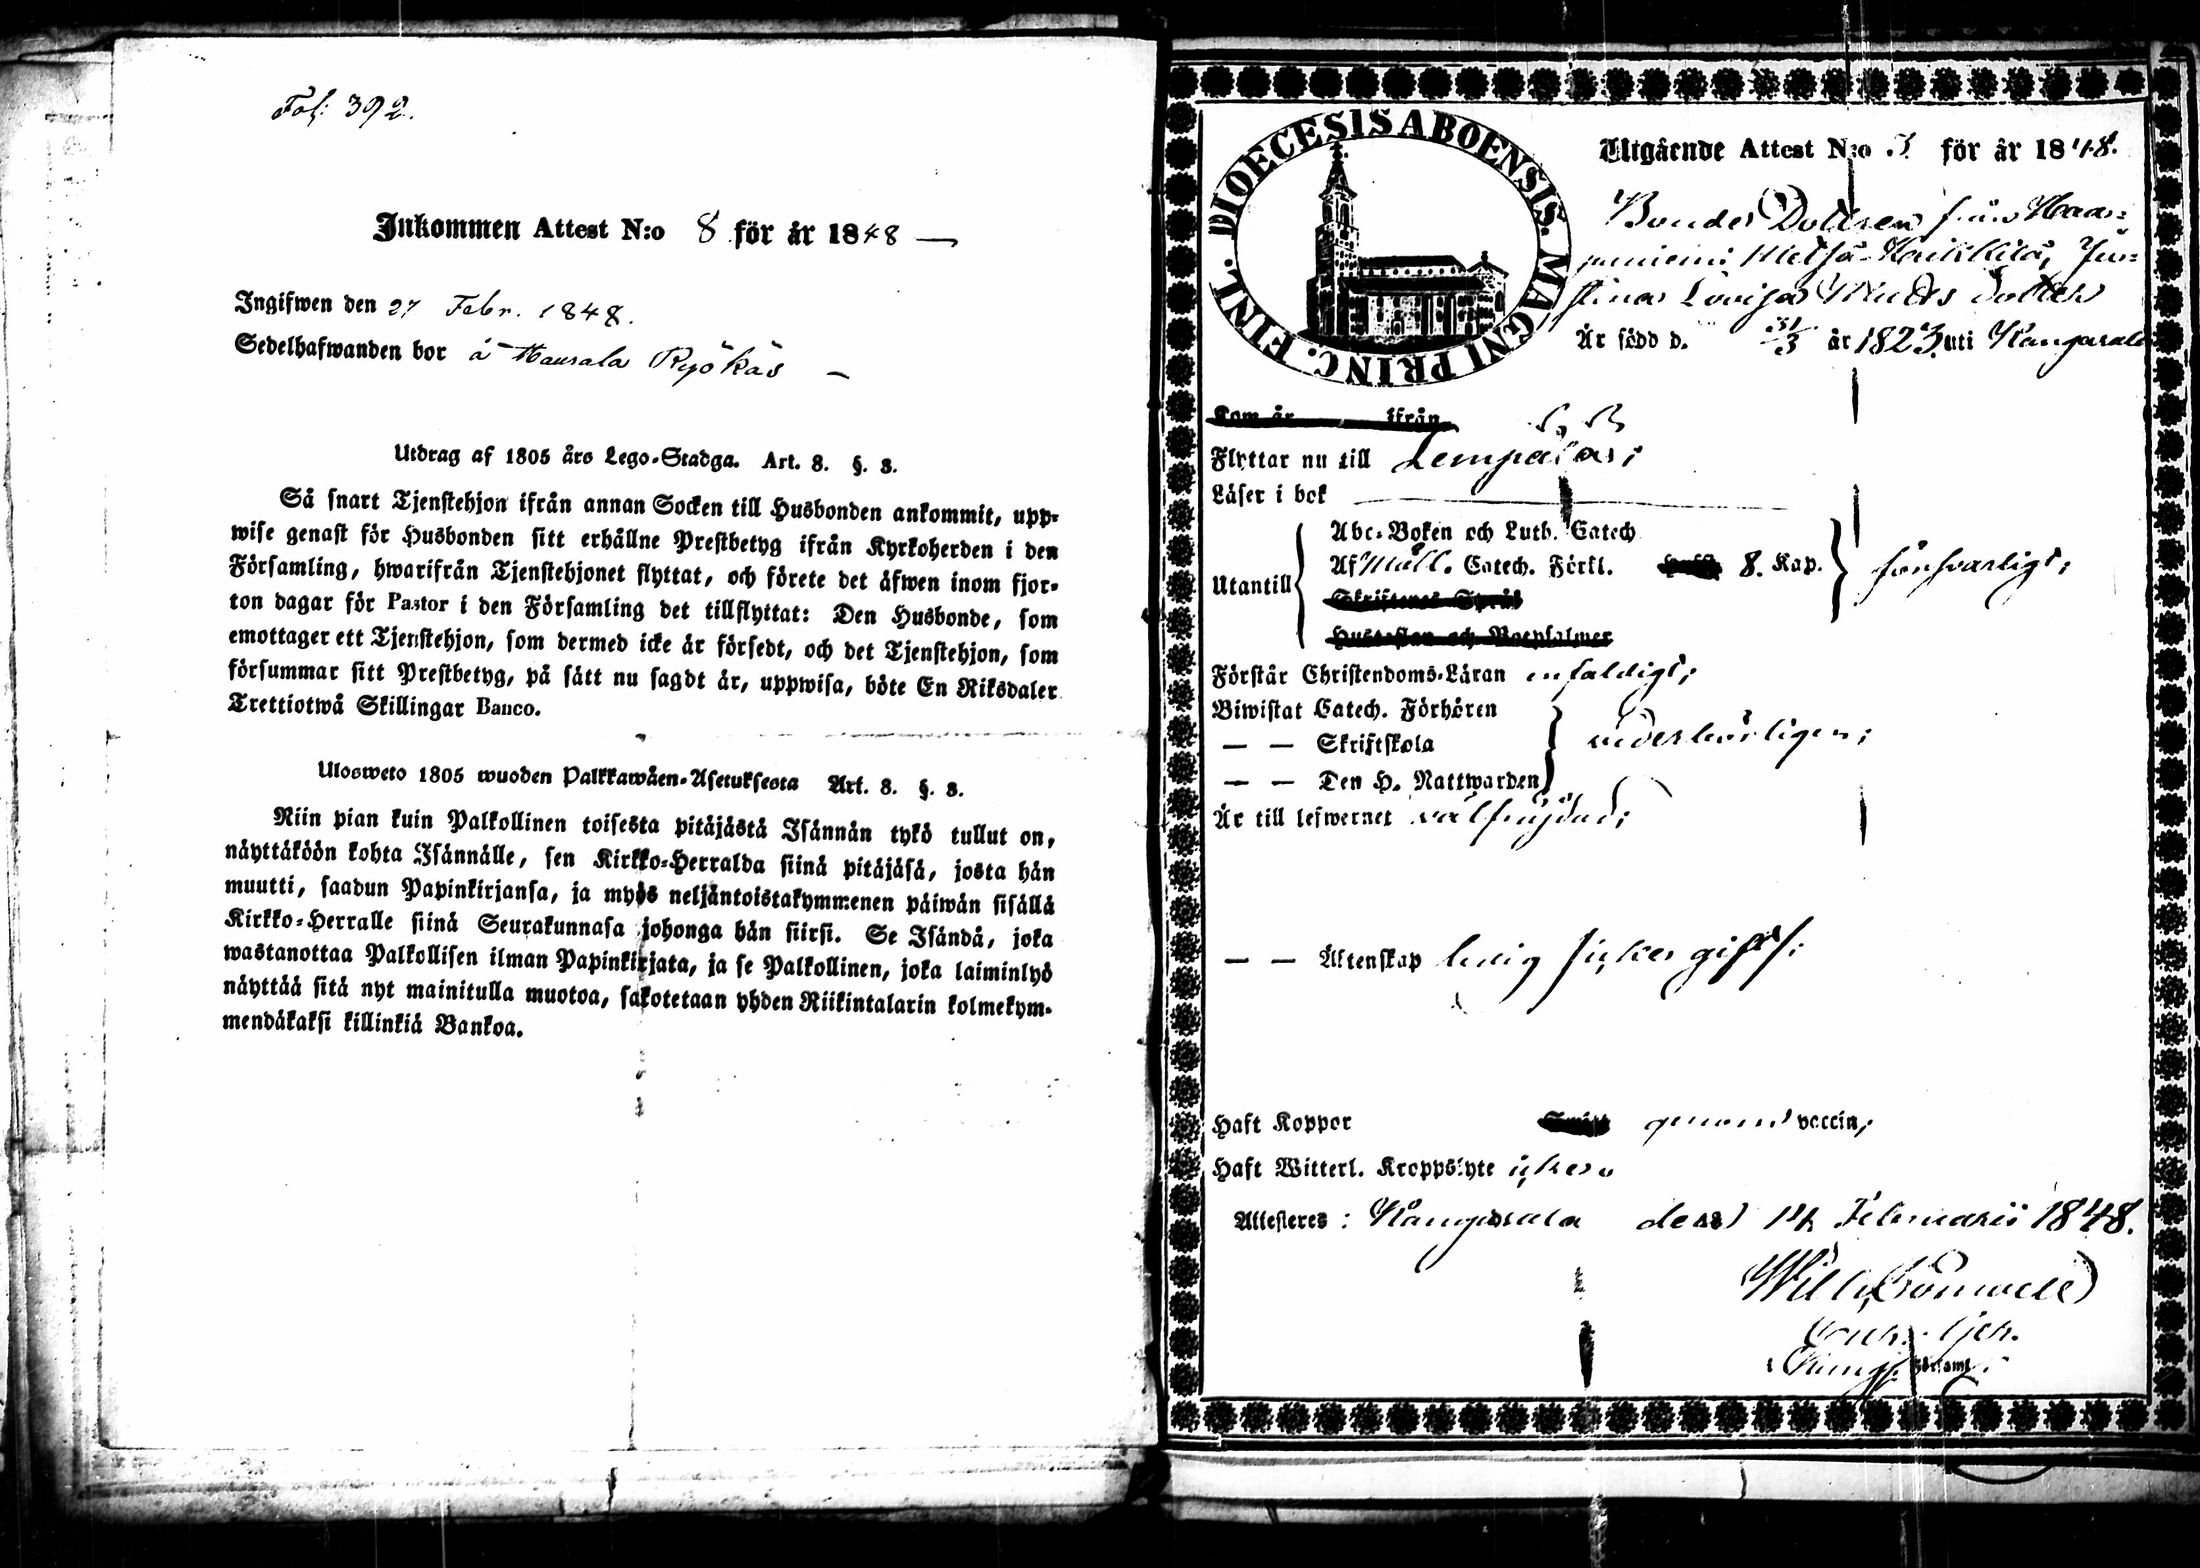 Fol: 392.
Inkommen Attest N:o 8 för år 1848 —
Ingifwen den 27 Febr. 1848.
Sedelhafwanden bor å Haurala Ryökäs —
Utdrag af 1805 års Lego-Stadga. Art. 8. §. 3.
Så snart Tjenstehjon ifrån annan Socken till Husbonden ankommit, upp-
wise genast för Husbonden sitt erhållne Prestbetyg ifrån Kyrkoherden i den
Församling, hwarifrån Tjenstehjonet flyttat, och förete det äfwen inom fjor-
ton dagar för Pastor i den Församling det tillflyttat: Den Husbonde, som
emottager ett Tjenstehjon, som dermed icke är försedt, och det Tjenstehjon, som
försummar sitt Prestbetyg, på sätt nu sagdt är, uppwisa, böte En Riksdaler
Trettiotwå Skillingar Banco.
Ulosweto 1805 wuoden Palkkawäen-Asetuksesta Art. 8. §. 3.
Niin pian kuin Palkollinen toisesta pitäjästä Isännän tykö tullut on,
näyttäköön kohta Isännälle, sen Kirkko-Herralda siinä pitäjäsä, josta hän
muutti, saadun Papinkirjansa, ja myös neljäntoistakymmenen päiwän sisällä
Kirkko-Herralle siinä Seurakunnasa johonga hän siirsi. Se Isändä, joka
wastanottaa Palkollisen ilman Papinkirjata, ja se Palkollinen, joka laiminlyö
näyttää sitä nyt mainitulla muotoa, sakotetaan yhden Riikintalarin kolmekym-
mendäkaksi killinkiä Bankoa.
DIOECESIS ABOENSIS. MAGNI PRINC. FINL.
Utgående Attest N:o 3. för år 1848.
Bonde Dottren från Haa-
paniemi Metsä-Heikkilä, Ju-
stina Lovisa Matts dotter
Är född d. 31/3 år 1823. uti Kangasala
Kom år ifrån
Flyttar nu till Lempäälä;
Läser i bok
Utantill
Abc-Boken och Luth. Catech
Af Möll. Catech. Förkl. 8. Kap. försvarligt;
Skriftenes Språk
Hustaflan och Botpsalmer
Förstår Christendoms-Läran enfaldigt;
Biwistat Catech. Förhören
— — Skriftskola vederbörligen;
— — Den H. Nattwarden
Är till lefwernet välfrejdad;
— — Äktenskap ledig till giftes;
Haft Koppor genom vaccin;
Haft Witterl. Kroppslyte
Attesteres: Kangasala den 14 Februarii 1848.
i Kang. Församl.